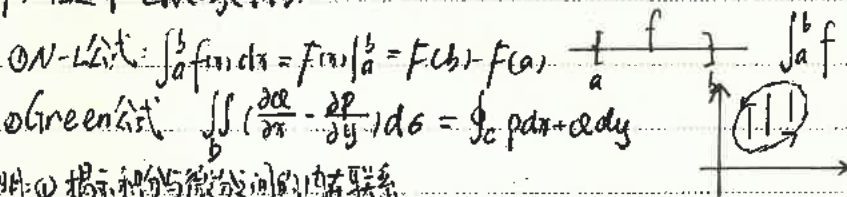 ①N-L公式: ∫_a^b f(x)dx = F(x)|_a^b = F(b)-F(a) a f b ∫_a^b f
②Green公式 ∬_D (∂Q/∂x - ∂P/∂y)dσ = ∮_C Pdx+Qdy
① 揭示积分与微分之间的内在联系